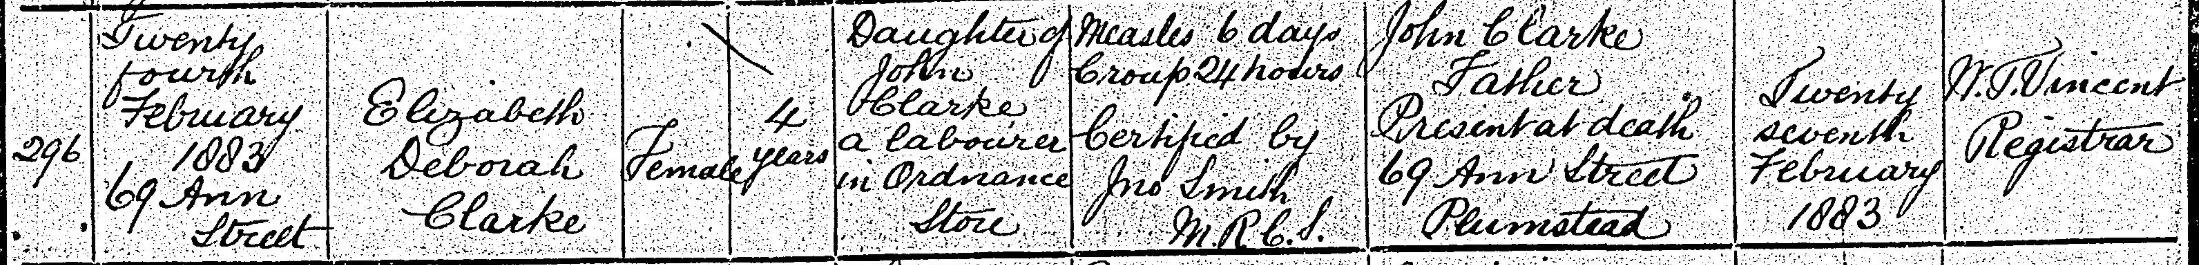 296
Twenty
fourth
February
1883
69 Ann
Street
Elizabeth
Deborah
Clarke
Female
4
years
Daughter of
John
Clarke
a labourer
in Ordnance
Store
Measles 6 days
Croup 24 hours
Certified by
Jno Smith
M.R.C.S.
John Clarke
Father
Present at death
69 Ann Street
Plumstead
Twenty
seventh
February
1883
W.T. Vincent
Registrar